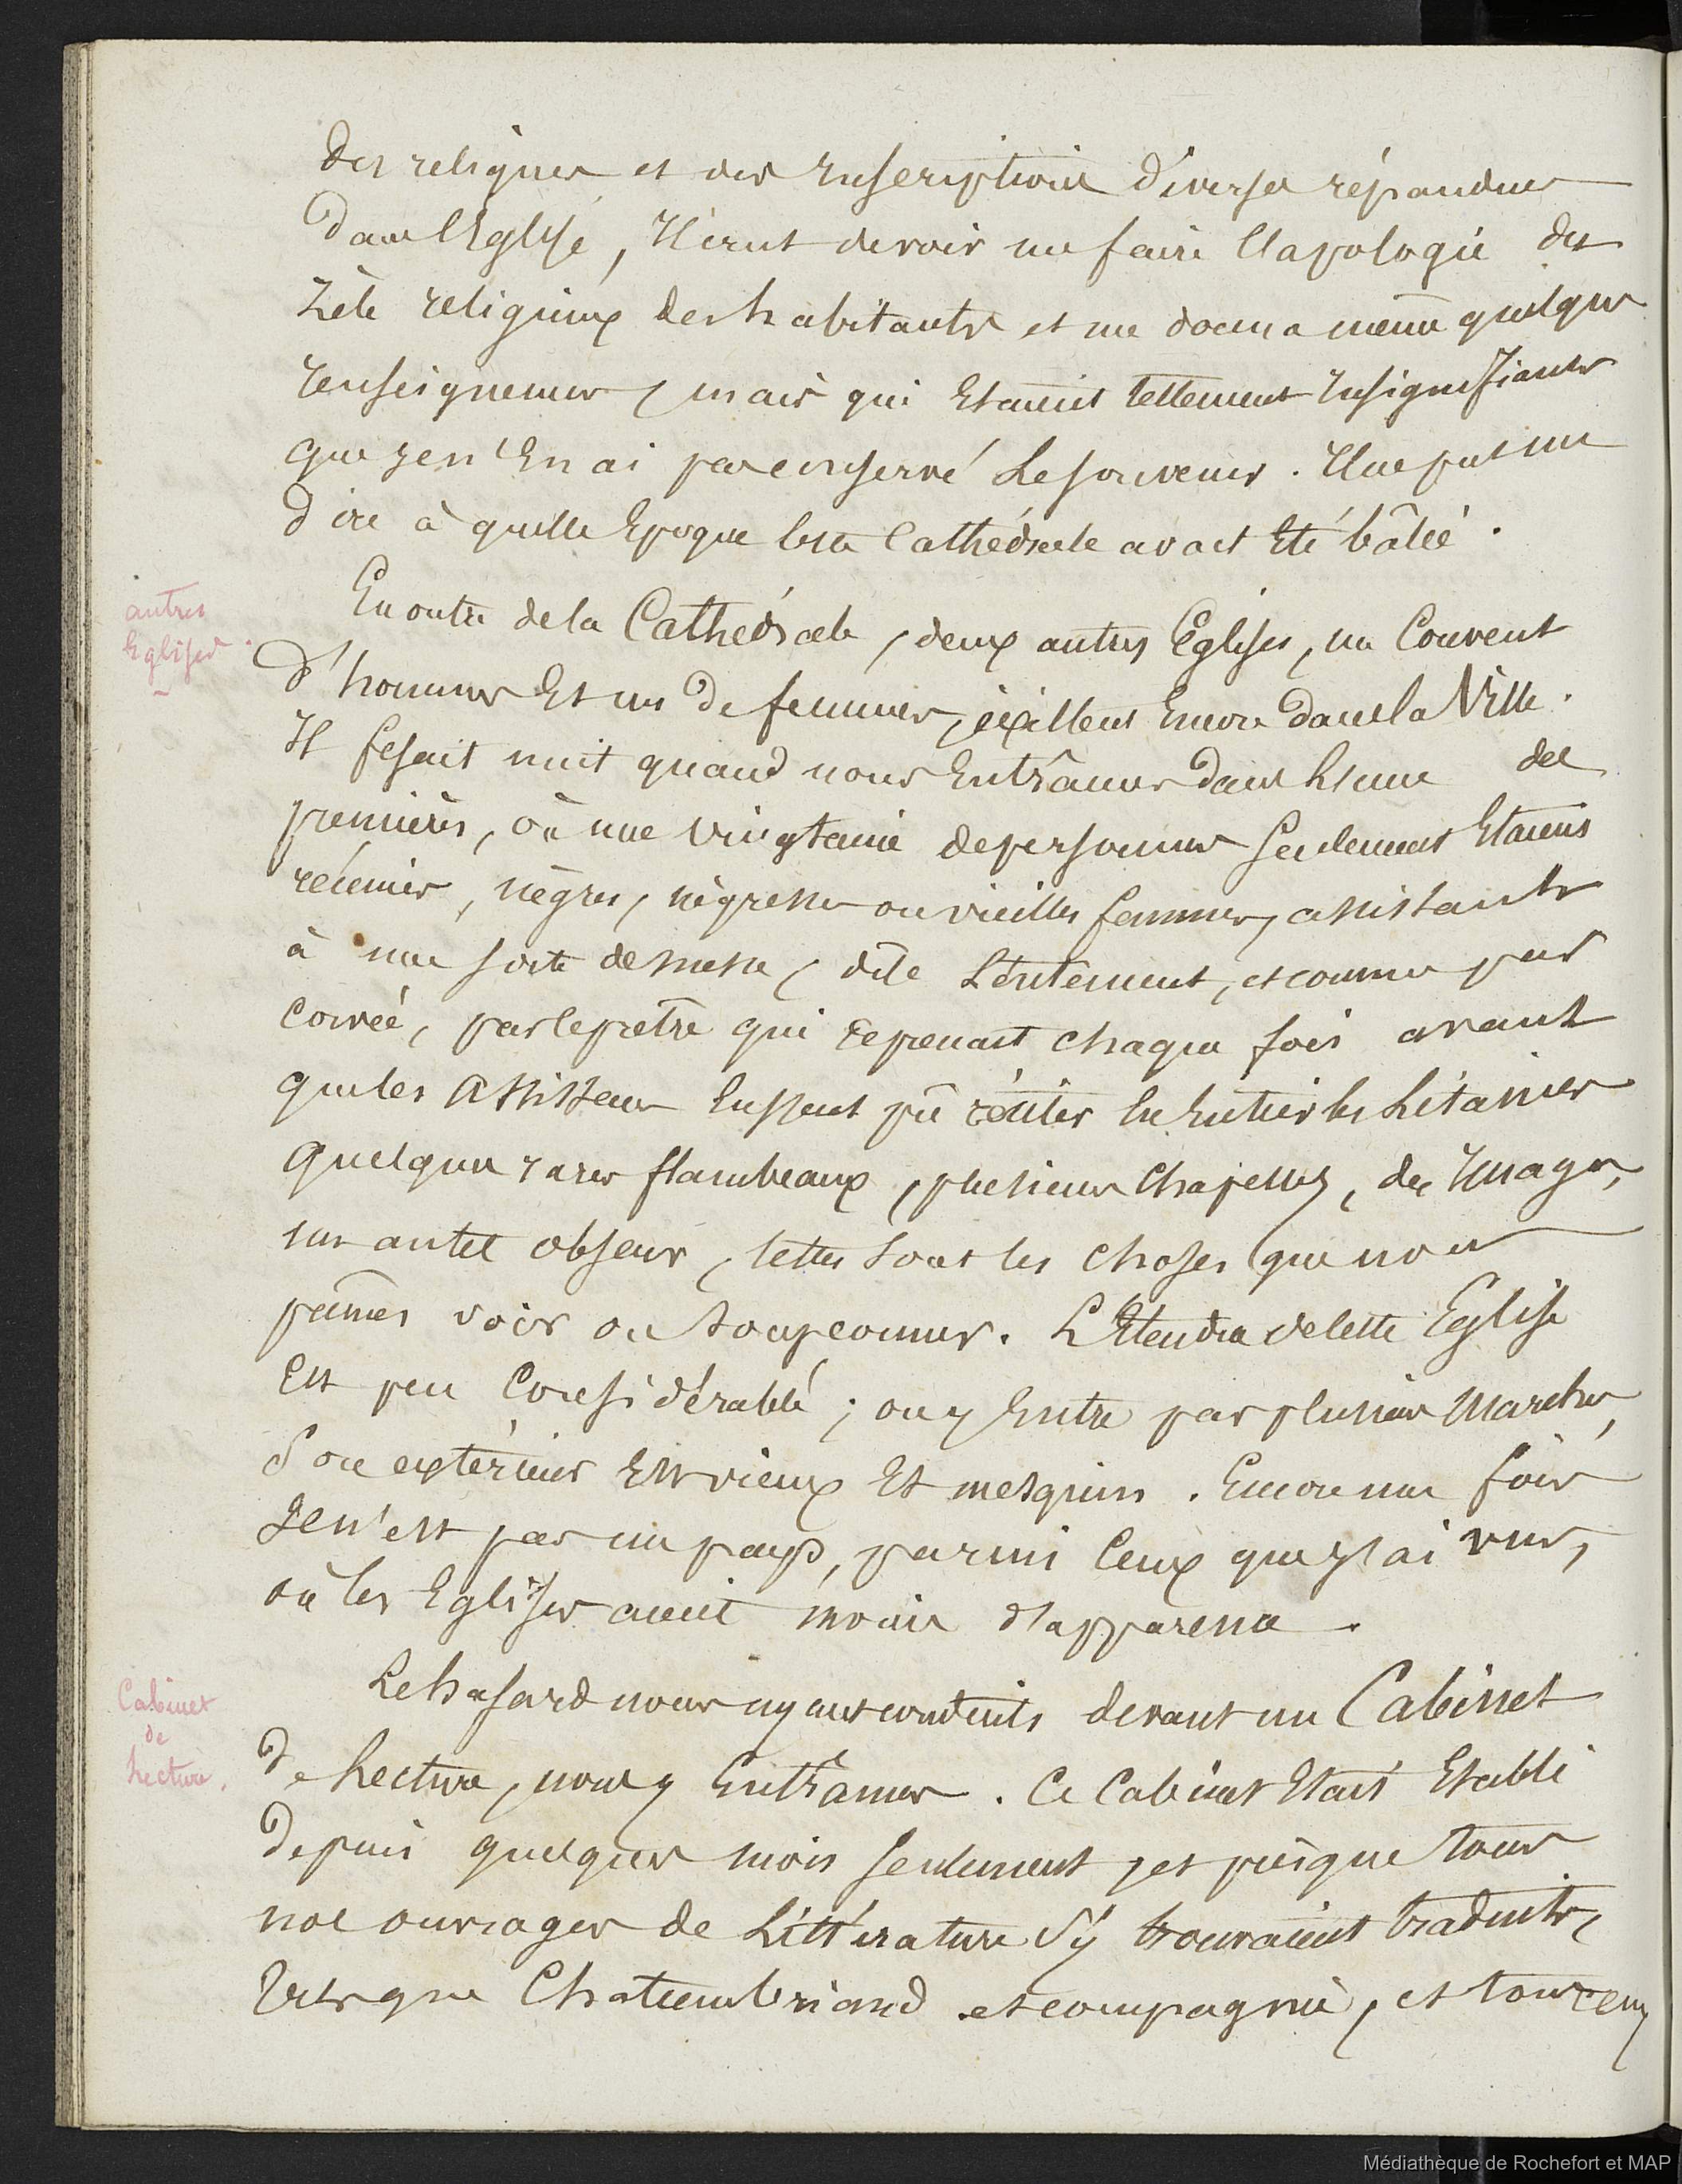 des reliques et des Inscriptions diverses répandues
dans l'Eglise, Il crut devoir me faire l'apologie du
zèle religieux des habitants et me donna même quelques
renseignemens, mais qui Etaient tellement Insignifiants
que je n'En ai pas conservé Le souvenir. Il ne put me
dire à quelle Epoque cette Cathédrale avait Eté bâtie.
autres
Eglises.
En outre de la Cathédrale, deux autres Eglises, un Couvent
d'hommes Et un de femmes, existent Encore dans la Ville.
Il fesait nuit quand nous Entrâmes dans L'une des
premières, où une vingtaine de personnes seulement Etaient
réunies, nègres, négresses ou vieilles femmes, assistants
à une sorte de messe, dite Lentement, et comme par
corvée, par le prêtre qui reprenait chaque fois avant
que les assistans Eussent pû réciter En Entier les Litanies
Quelques rares flambeaux, plusieurs Chapelles, des Images,
un autel obscur, telles sont les choses que nous
pûmes voir ou soupçonner. L'Etendue de cette Eglise
Est peu Considérable; on y Entre par plusieurs Marches,
Son extérieur Est vieux Et mesquin. Encore une fois
Je n'est pas un pays, parmi Ceux que j'ai vus,
où les Eglises aient moins d'apparence.
Cabinet
de
Lecture.
Le hasard nous ayant conduits devant un Cabinet
de Lecture, nous y Entrâmes. Ce Cabinet Etait Etabli
depuis quelques mois seulement, et presque tous
nos ouvrages de Littérature s'y trouvaient traduits,
tels que Chateaubriand et compagnie, et tous ceux